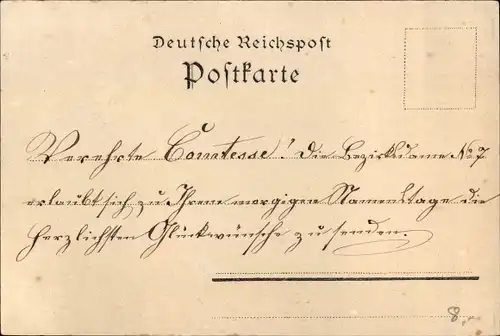 Deutsche Reichspost
Postkarte
Verehrte Comtesse! Die Bezirksdame No 7
erlaubt sich, zu Ihrem morgigen Namenstage die
herzlichsten Glückwünsche zu senden.
8,-